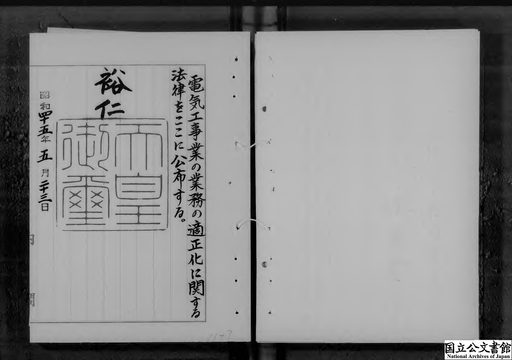 電気工事業の業務の適正化に関する
法律をここに公布する。
裕仁
天皇
御璽
昭和四十五年五月二十三日
国立公文書館
National Archives of Japan